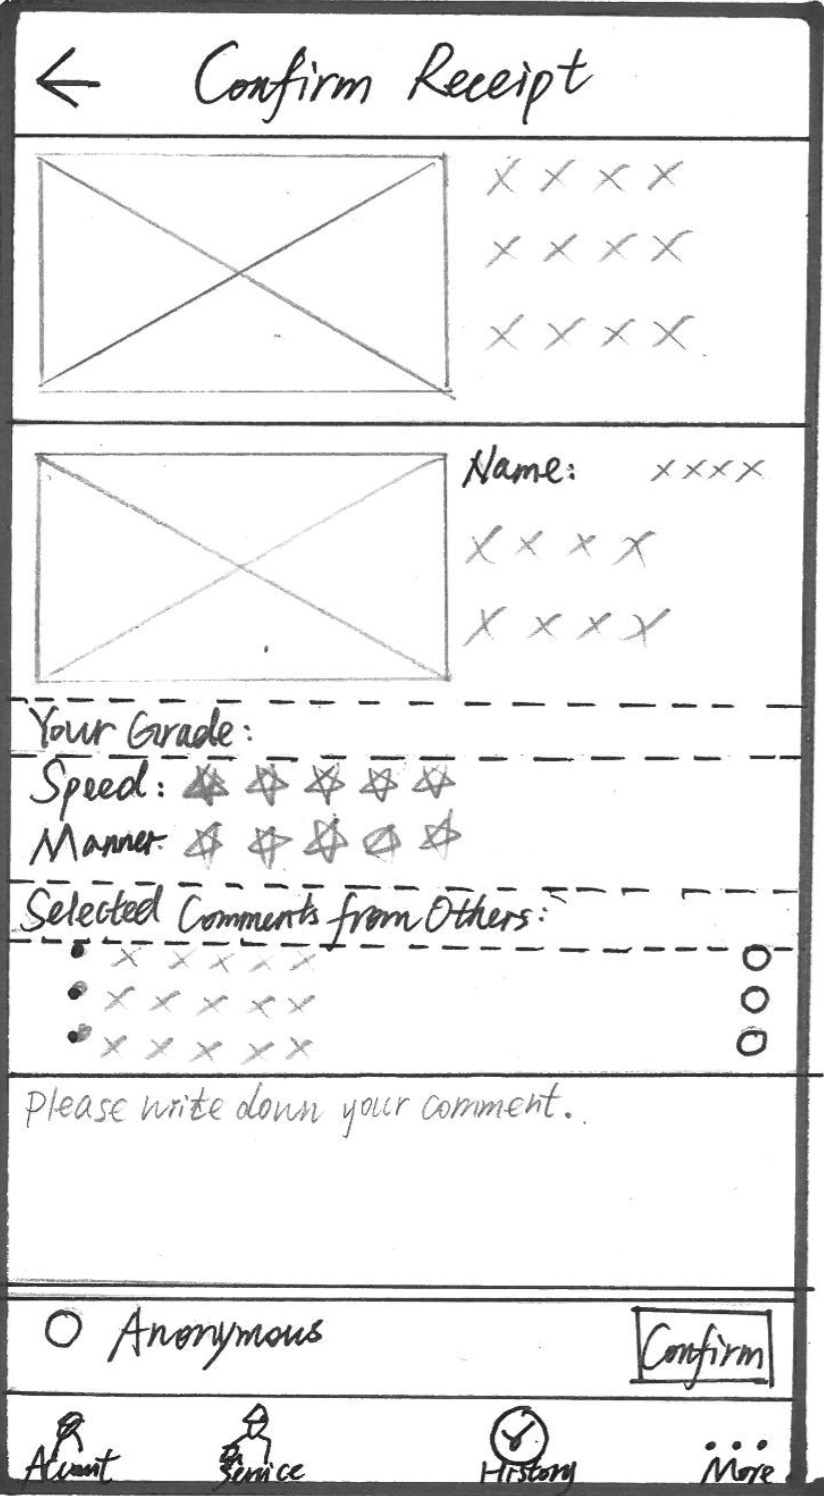 Confirm Receipt
X X X X
X X X X
X X X X
Name: XXXX
X X X X
X X X X
Your Grade:
Speed:
Manner:
Selected Comments from Others:
X X X X X
X X X X X
X X X X X
Please write down your comment.
Anonymous
Confirm
Account Service History More